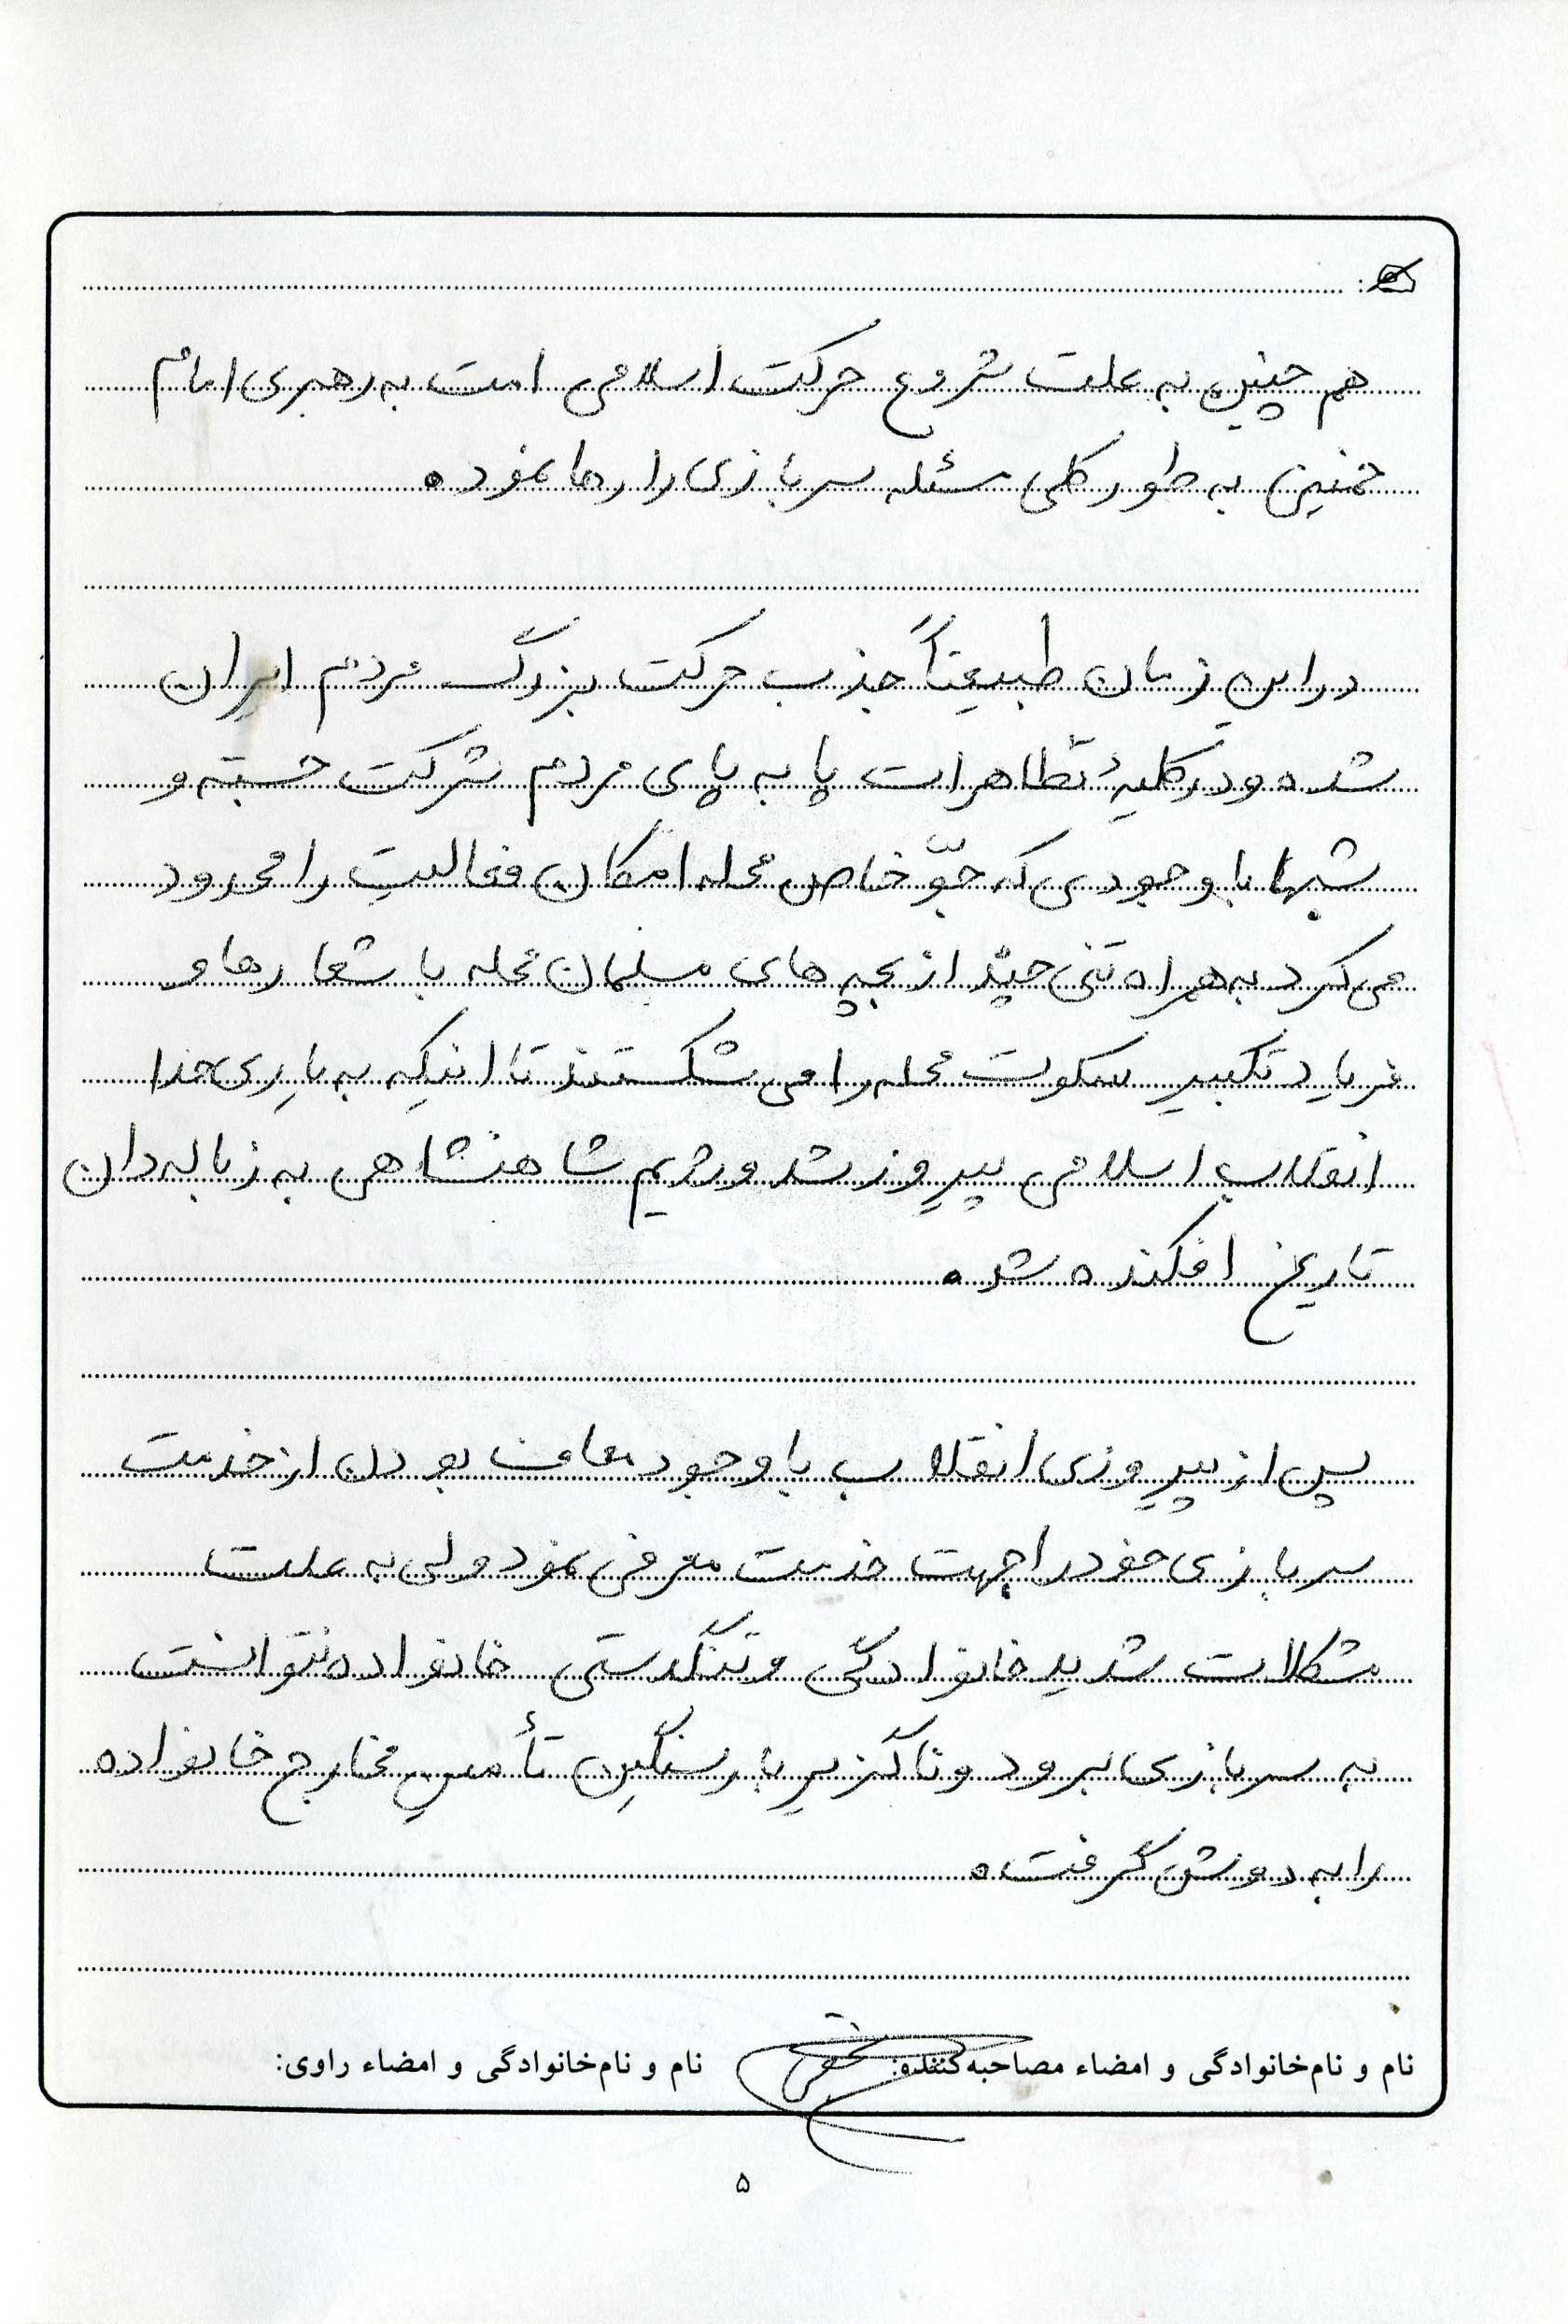 هم چنین به علت شروع حرکت اسلامی امت به رهبری امام
خمینی به طور کلی مسئله سربازی را رها نمود.
در این زمان طبیعتاً جذب حرکت بزرگ مردم ایران
شده و در کلیهٔ تظاهرات پا به پای مردم شرکت جسته و
شبها با وجودی که جوّ خاص محله امکان فعالیت را محدود
می کرد به همراه تنی چند از بچه های مسلمان محله با شعارها و
فریاد تکبیر سکوت محله را می شکستند تا اینکه به یاری خدا
انقلاب اسلامی پیروز شد و رژیم شاهنشاهی به زباله دان
تاریخ افکنده شد.
پس از پیروزی انقلاب با وجود معاف بودن از خدمت
سربازی خود را جهت خدمت معرفی نمود ولی به علت
مشکلات شدید خانوادگی و تنگدستی خانواده نتوانست
به سربازی برود و ناگزیر بار سنگین تأمین مخارج خانواده
را به دوش گرفت.
نام و نام‌خانوادگی و امضاء مصاحبه‌کننده: نام و نام‌خانوادگی و امضاء راوی:
۵